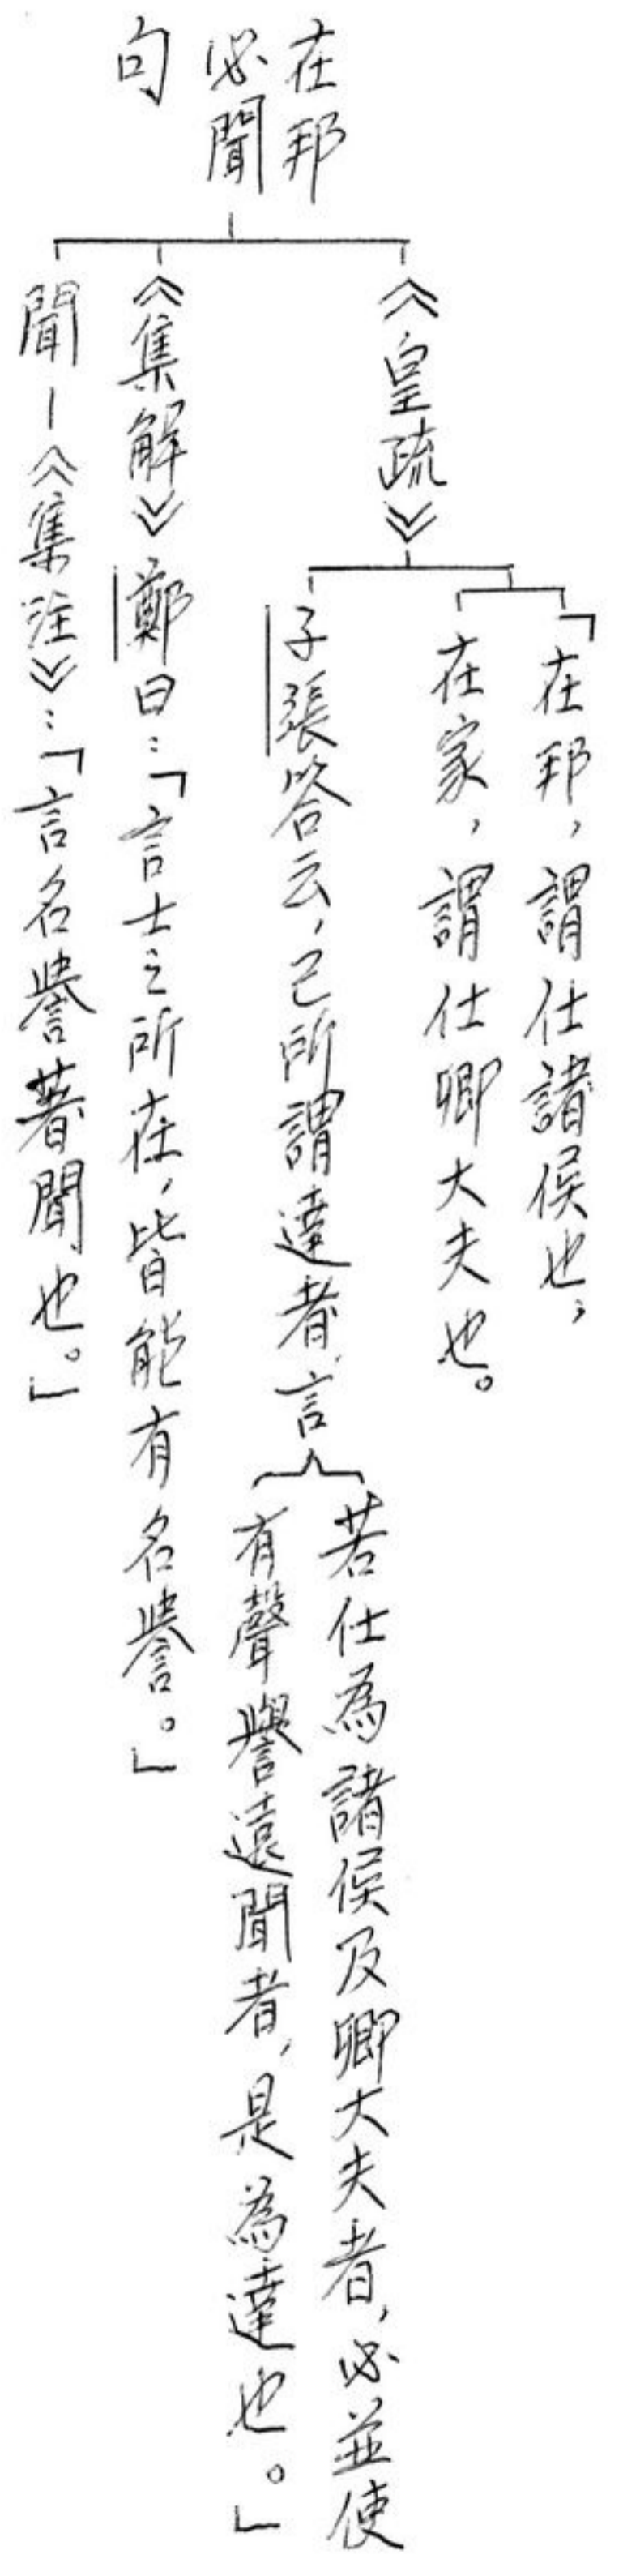 在邦
必聞
句
《皇疏》
「在邦，謂仕諸侯也；
在家，謂仕卿大夫也。
子張答云，己所謂達者，言
若仕為諸侯及卿大夫者，必並使
有聲譽遠聞者，是為達也。」
《集解》鄭曰：「言士之所在，皆能有名譽。」
聞－《集注》：「言名譽著聞也。」